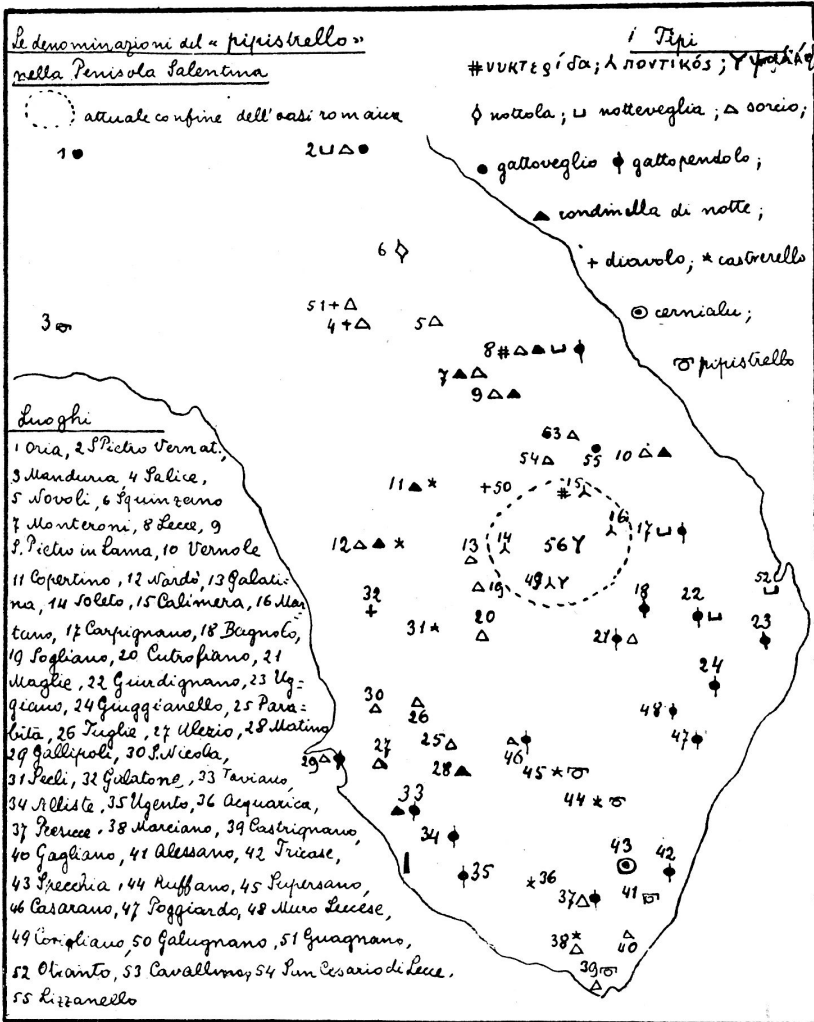 Le denominazioni del « pipistrello »
nella Penisola Salentina
attuale confine dell'oasi romaica
i Tipi
# νυκτερίδα; ⅄ ποντικός; Y
◊ nottola; ⊔ notteveglia; △ sorcio;
● gattoveglio ⧫ gattopendolo;
▲ rondinella di notte;
+ diavolo; * castrerello
⊙ cernialu;
pipistrello
1 ●
2 ⊔ △ ●
6 ◊
51 + △
4 + △
5 △
3
8 # △ ▲ ⊔ ⧫
7 ▲ △
9 △ ▲
63 △
54 △
55 ●
10 △ ▲
11 ▲ *
+ 50
15 # ⅄
16 ⅄
12 △ ▲ *
13 △
14 ⅄
56 Y
17 ⊔ ⧫
49 ⅄ Y
19 △
52 ⊔
32 +
18 ⧫
22 ⧫ ⊔
23 ⧫
31 *
20 △
21 ⧫ △
24 ⧫
30 △
26 △
48 ⧫
47 ⧫
29 △ ⧫
27 ▲
25 △
28 ▲
46 △ ⧫
45 *
44 *
33 ▲ ⧫
34 ⧫
35 ⧫
36 *
43 ⊙
42 ⧫
37 △ ⧫
41
38 * △
40 △
39 △
Luoghi
1 Oria, 2 S Pietro Vernat.,
3 Manduria, 4 Salice,
5 Novoli, 6 Squinzano
7 Monteroni, 8 Lecce, 9
S. Pietro in Lama, 10 Vernole
11 Copertino, 12 Nardò, 13 Galati=
na, 14 Soleto, 15 Calimera, 16 Mar
tano, 17 Carpignano, 18 Bagnolo,
19 Sogliano, 20 Cutrofiano, 21
Maglie, 22 Giurdignano, 23 Ug=
giano, 24 Giuggianello, 25 Para=
bita, 26 Tuglie, 27 Alezio, 28 Matino
29 Gallipoli, 30 S. Nicola,
31 Secli, 32 Galatone, 33 Taviano,
34 Alliste, 35 Ugento, 36 Acquarica,
37 Presicce, 38 Morciano, 39 Castrignano,
40 Gagliano, 41 Alessano, 42 Tricase,
43 Specchia, 44 Ruffano, 45 Supersano,
46 Casarano, 47 Poggiardo, 48 Muro Leccese,
49 Corigliano, 50 Galugnano, 51 Guagnano,
52 Otranto, 53 Cavallino, 54 San Cesario di Lecce.
55 Lizzanello